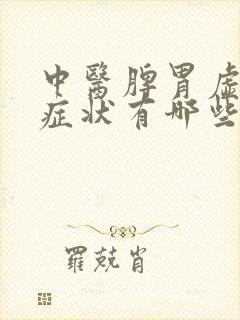 中醫脾胃虛
症狀有哪些
羅兢肖